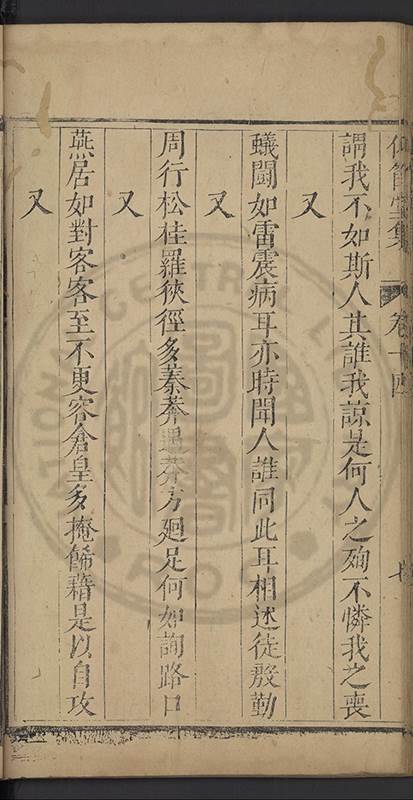 謂我不如斯人其誰我諒是何人之殉不憐我之喪
又
蟻鬪如雷震病耳亦時聞人誰同此耳相述徒殷勤
又
周行松桂羅狹徑多蓁莽遇莽方廻足何如詢路口
又
燕居如對客客至不更容倉皇多掩餙藉是以自攻
又
集
卷十四
七